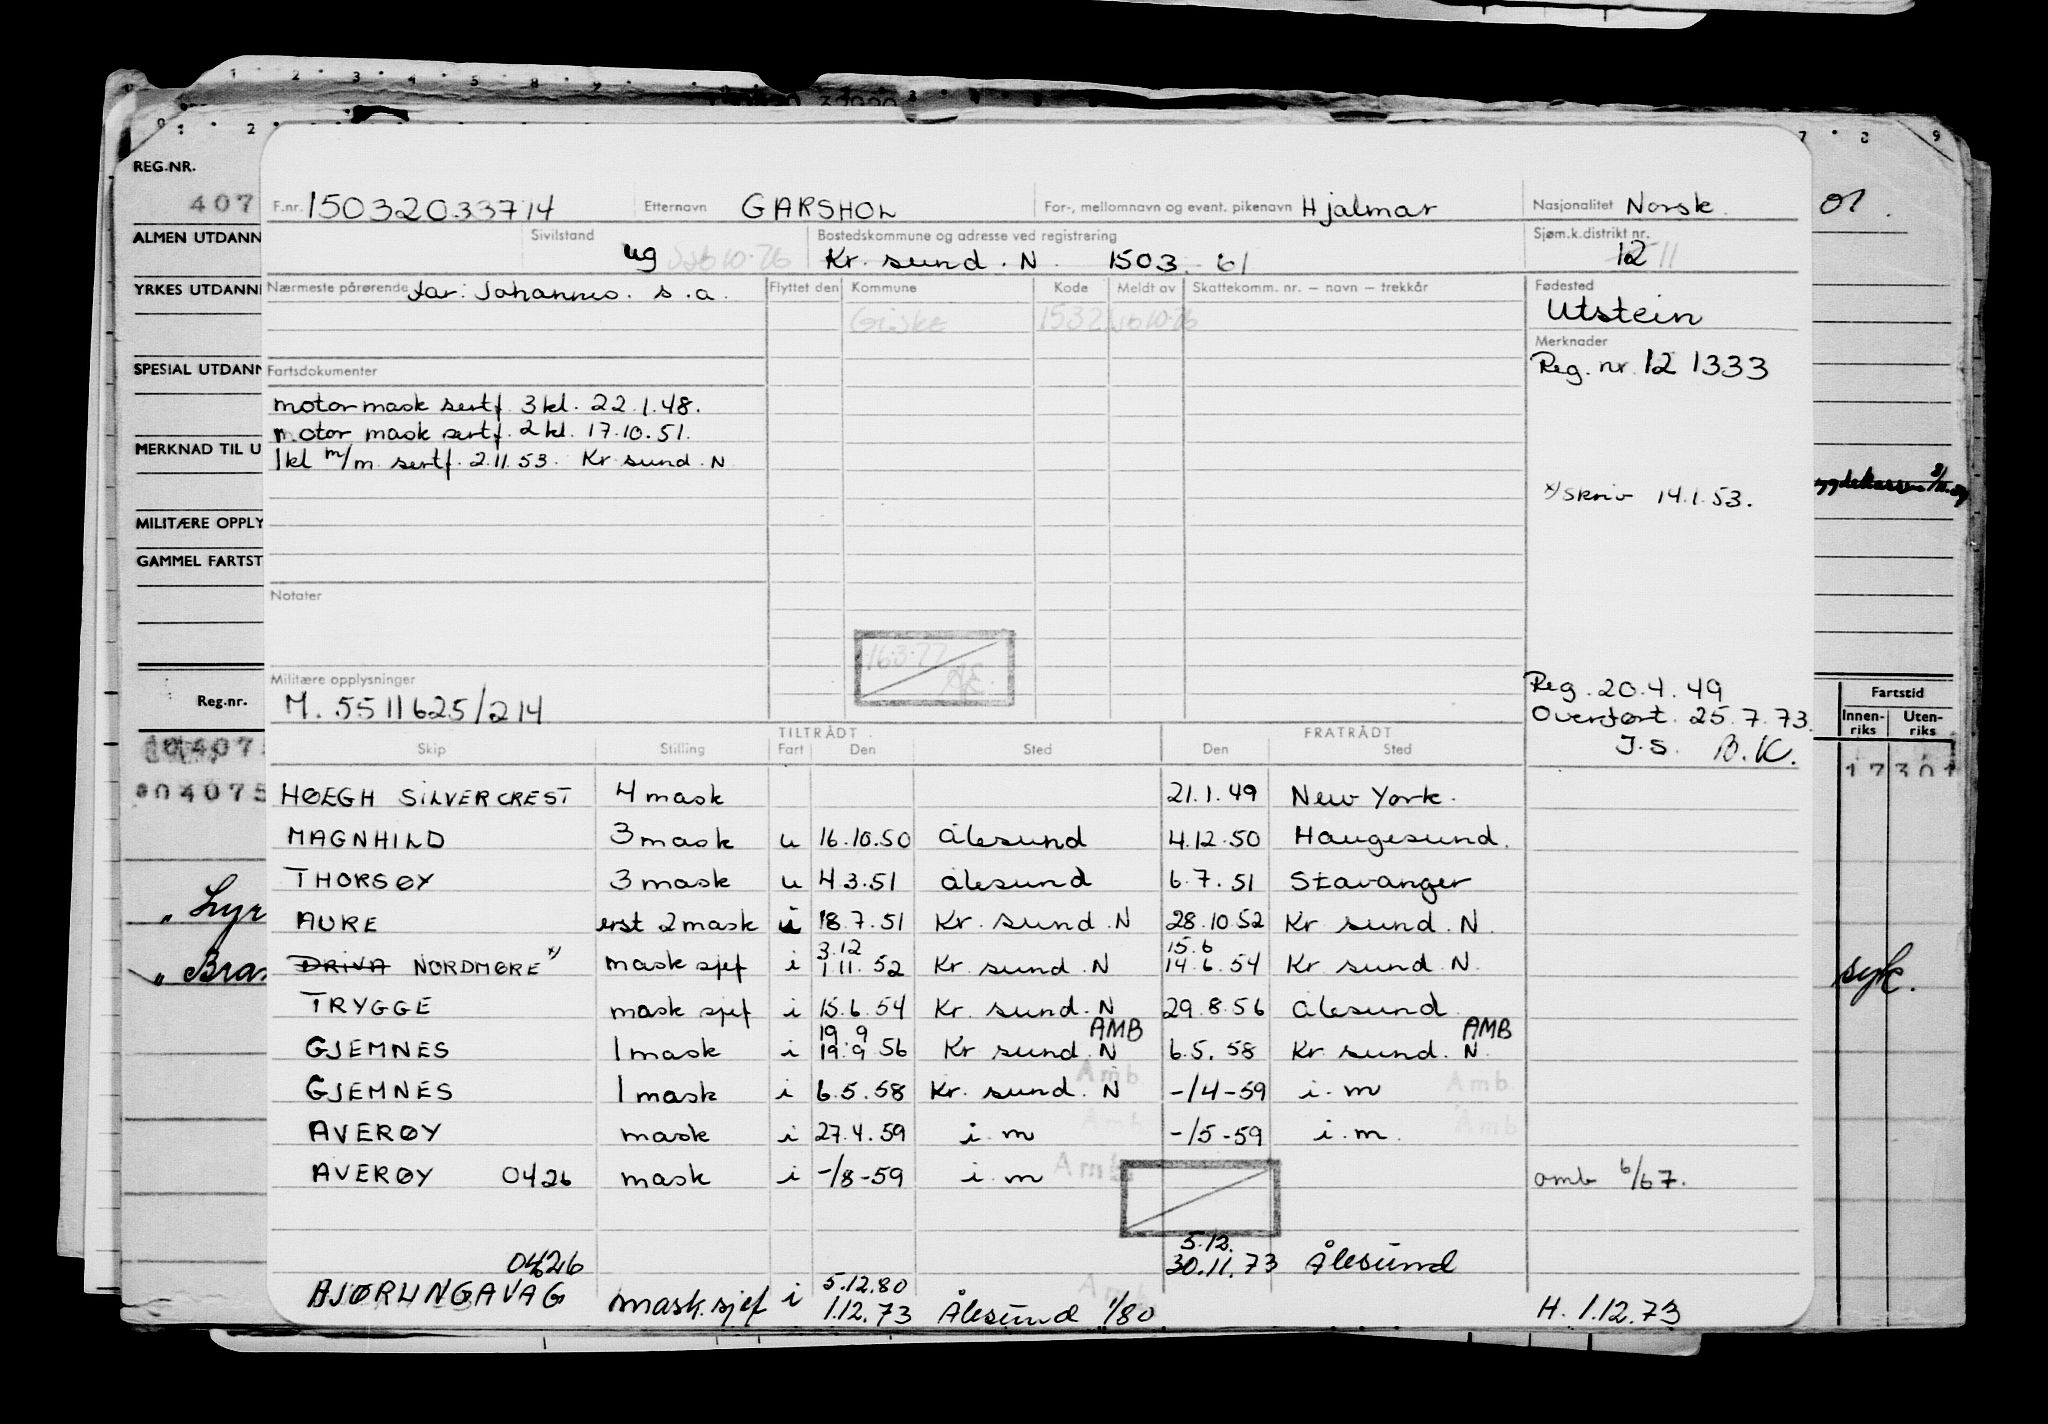 REG.NR.
407
ALMEN UTDANN
YRKES UTDANNI
SPESIAL UTDANN
MERKNAD TIL U
MILITÆRE OPPLY
GAMMEL FARTST
Reg.nr.
Fartstid
Innen-riks Uten-riks
17301
syk.
F.nr. 15032033714 Etternavn GARSHOL For-, mellomnavn og event. pikenavn Hjalmar Nasjonalitet Norsk
Sivilstand ug Bostedskommune og adresse ved registrering Kr. sund. N 1503. 61 Sjøm.k.distrikt nr. 12 11
Nærmeste pårørende far: Johannes. s.a. Flyttet den Kommune Kode Meldt av Skattekomm. nr. – navn – trekkår Fødested
Giske 1532 Utstein
Merknader
Reg. nr. 12 1333
Fartsdokumenter
motor mask sertf. 3 kl. 22.1.48.
motor mask sertf. 2 kl. 17.10.51.
1 kl m/m. sertf. 2.11.53. Kr. sund. N
x/ skriv 14.1.53.
Notater
16.3.77
Militære opplysninger
M. 5511625/214
Reg. 20.4.49
Overført. 25.7.73.
J.S. B.K.
TILTRÅDT FRATRÅDT
Skip Stilling Fart Den Sted Den Sted
HØEGH SILVERCREST 4 mask 21.1.49 New York.
MAGNHILD 3 mask u 16.10.50 Ålesund 4.12.50 Haugesund.
THORSØY 3 mask u 4.3.51 Ålesund 6.7.51 Stavanger
AURE erst 2 mask i 18.7.51 Kr. sund. N 28.10.52 Kr. sund. N.
3.12 15.6
DRIVA NORDMØRE x/ mask sjef i 1.11.52 Kr. sund. N 14.6.54 Kr. sund. N.
TRYGGE mask sjef i 15.6.54 Kr. sund. N 29.8.56 Ålesund
19.9 AMB AMB
GJEMNES 1 mask i 19.9 56 Kr. sund. N 6.5.58 Kr. sund. N.
Amb Amb.
GJEMNES 1 mask i 6.5.58 Kr. sund. N -/4-59 i.m
Amb Amb
AVERØY mask i 27.4.59 i.m -/5-59 i.m.
Amb
AVERØY 0426 mask i -/8-59 i.m amb 6/67.
5.12.
0426 30.11.73 Ålesund
5.12.80
BJØRLINGAVAG mask.sjef i 1.12.73 Ålesund 1/80 H. 1.12.73